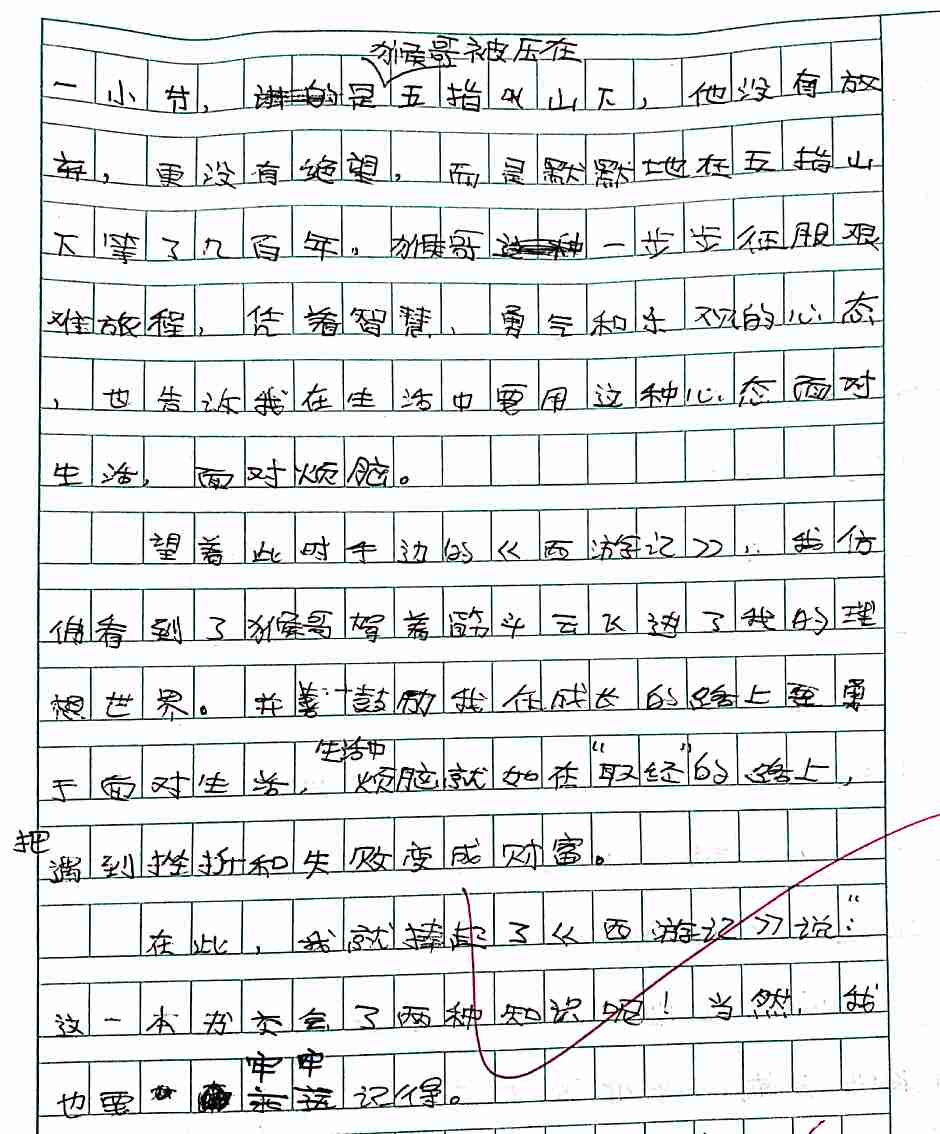 猴哥被压在
一小节，讲的是五指山下，他没有放
弃，更没有绝望，而是默默地在五指山
下等了几百年。猴哥这种一步步征服艰
难旅程，凭着智慧、勇气和乐观的心态
，也告诉我在生活中要用这种心态面对
生活，面对烦脑。
望着此时手边的《西游记》，我仿
佛看到了猴哥驾着筋斗云飞进了我的理
想世界。并鼓励我在成长的路上要勇
生活中
于面对生活，烦脑就如在“取经”的路上，
把遇到挫折和失败变成财富。
在此，我就捧起了《西游记》说：“
这一本书交会了两种知识呢！当然，我
牢牢
也要永远记得。